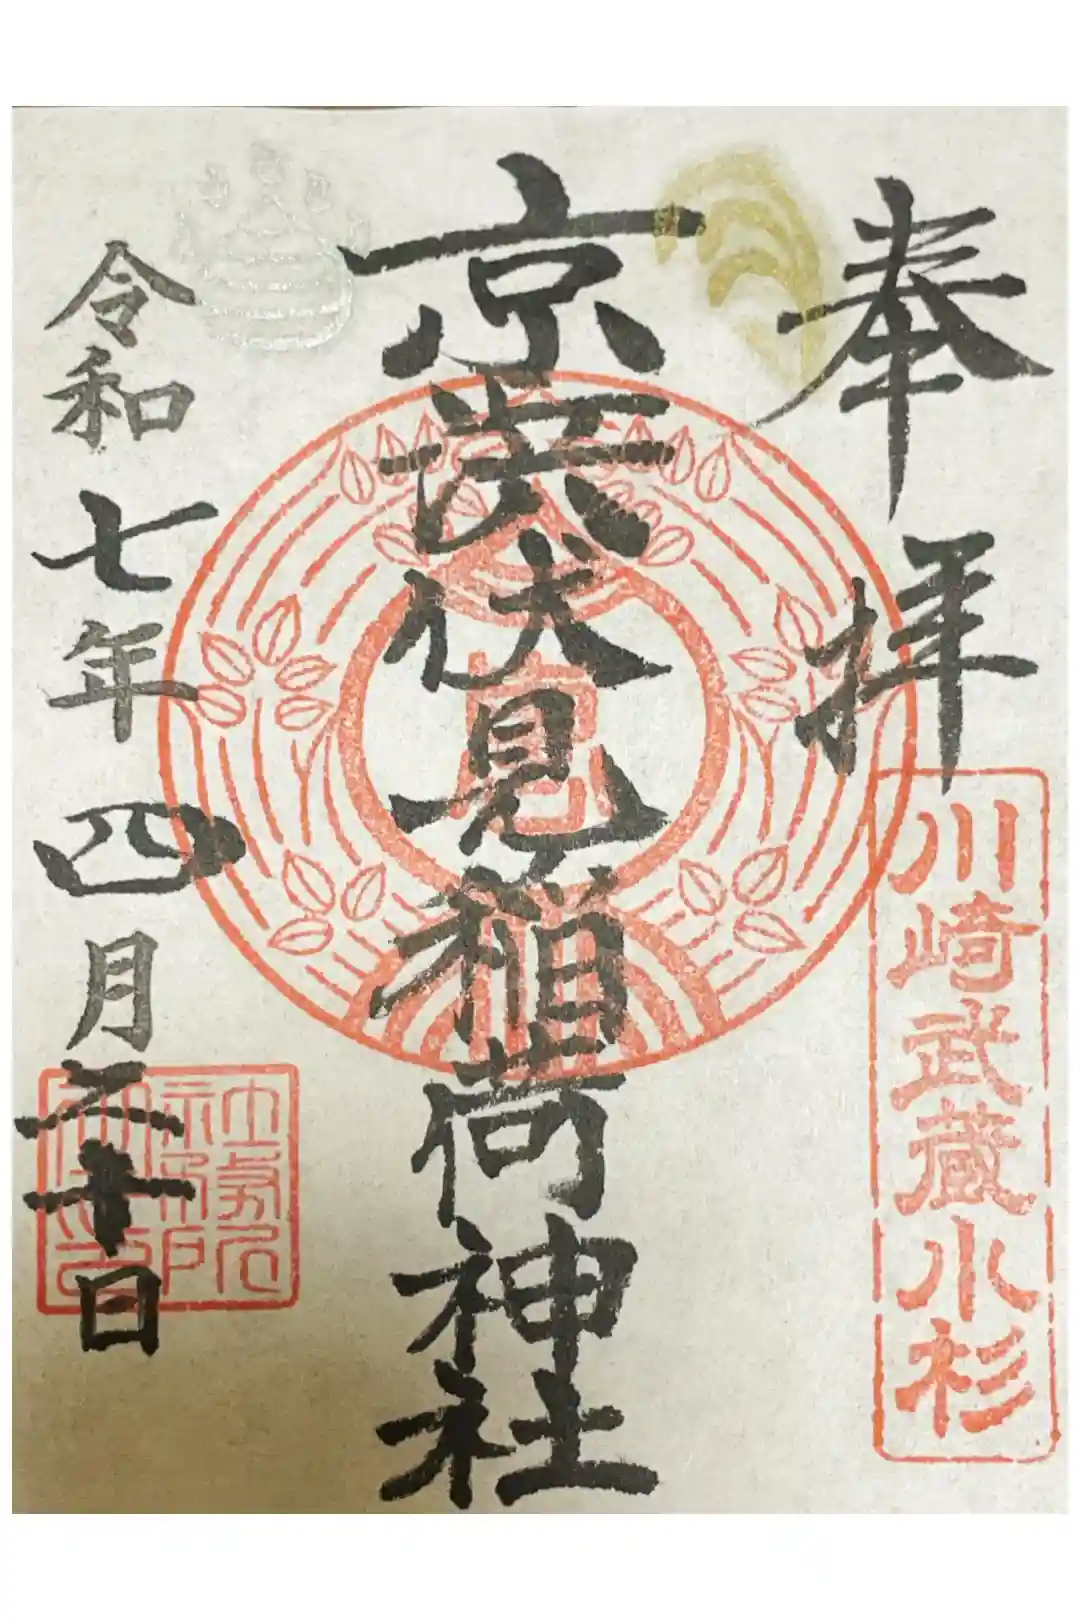 奉拝
川崎武蔵小杉
京浜伏見稲荷神社
令和七年四月二十日